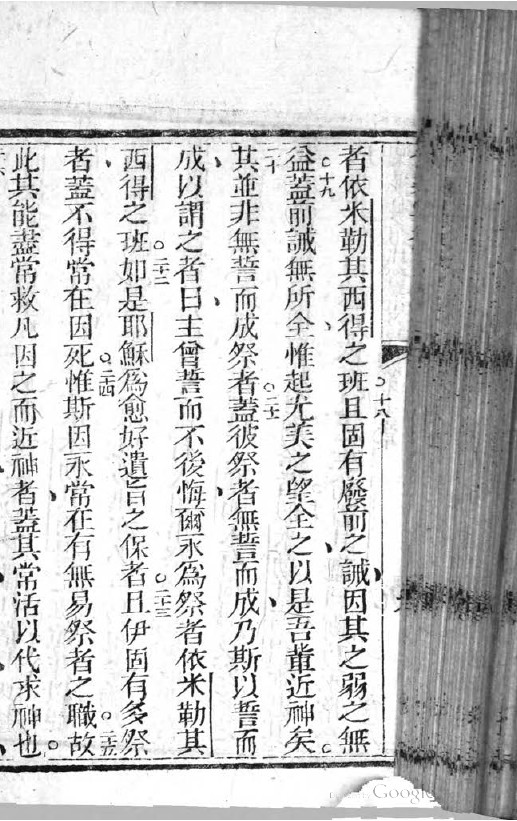 者依米勒其西得之班且○十八固有廢前之誡因其之弱之無
益○十九蓋前誡無所全惟起尤美之望全之以是吾輩近神矣○
二十其並非無誓而成祭者○二十一蓋彼祭者無誓而成乃斯以誓而
成以謂之者曰主曾誓而不後悔爾永為祭者依米勒其
西得之班○二十二如是耶穌為愈好遺旨之保者○二十三且伊固有多祭
者蓋不得常在因死○二十四惟斯因永常在有無易祭者之職○二十五故
此其能盡常救凡因之而近神者蓋其常活以代求神也○
Google